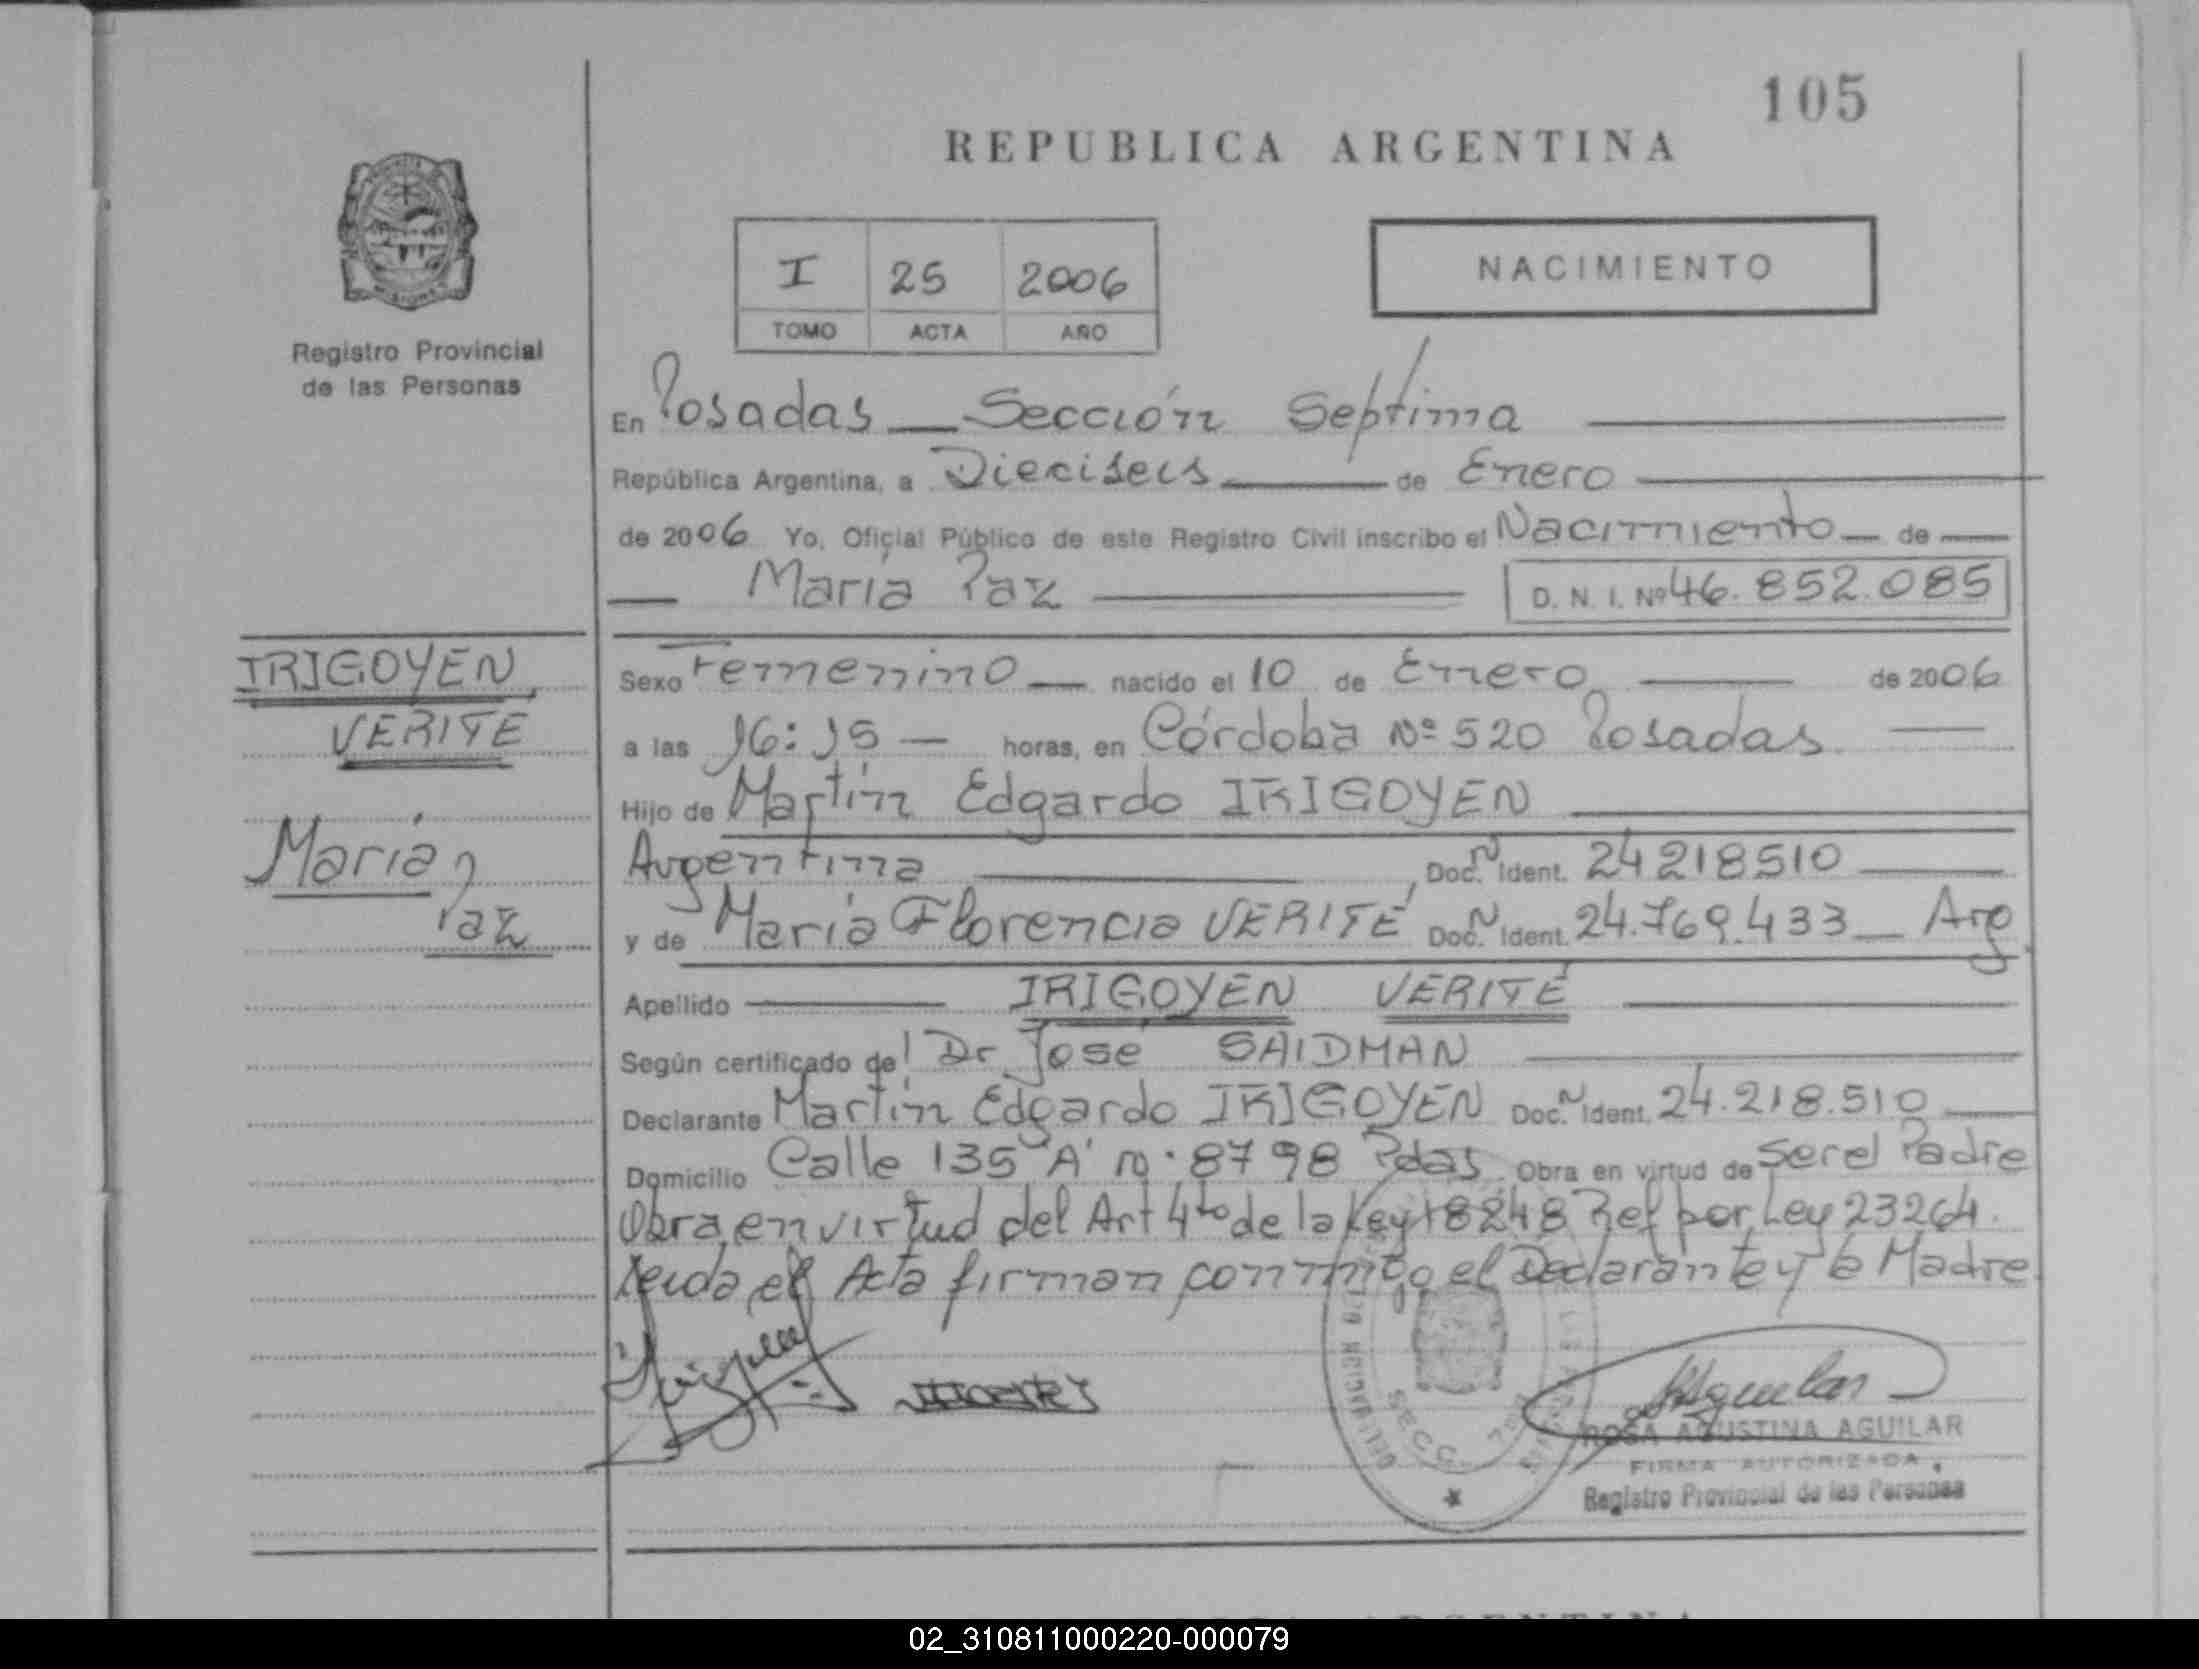 105
REPUBLICA ARGENTINA
I 25 2006
TOMO ACTA AÑO
NACIMIENTO
Registro Provincial
de las Personas
En Posadas — Sección Séptima
República Argentina, a Dieciseis de Enero
de 2006 Yo, Oficial Público de este Registro Civil inscribo el Nacimiento — de
María Paz D. N. I. Nº 46.852.085
IRIGOYEN
VERITÉ
María
Paz
Sexo Femenino — nacido el 10 de Enero de 2006
a las 16:15 — horas, en Córdoba Nº 520 Posadas
Hijo de Martín Edgardo IRIGOYEN
Argentina Doc. N Ident. 24218510
y de María Florencia VERITÉ Doc. N Ident. 24.769.433 — Arg
Apellido IRIGOYEN VERITÉ
Según certificado de Dr José SAIDMAN
Declarante Martín Edgardo IRIGOYEN Doc. N Ident. 24.218.510
Domicilio Calle 135 "A" Nº 8798 Pdas Obra en virtud de Ser el Padre
Obra en virtud del Art 4to de la Ley 18248 Ref por Ley 23264.
Leida el Acta firman conmigo el Declarante y la Madre
SECC. 7MA
ROSA AGUSTINA AGUILAR
FIRMA AUTORIZADA
Registro Provincial de las Personas
02_310811000220-000079